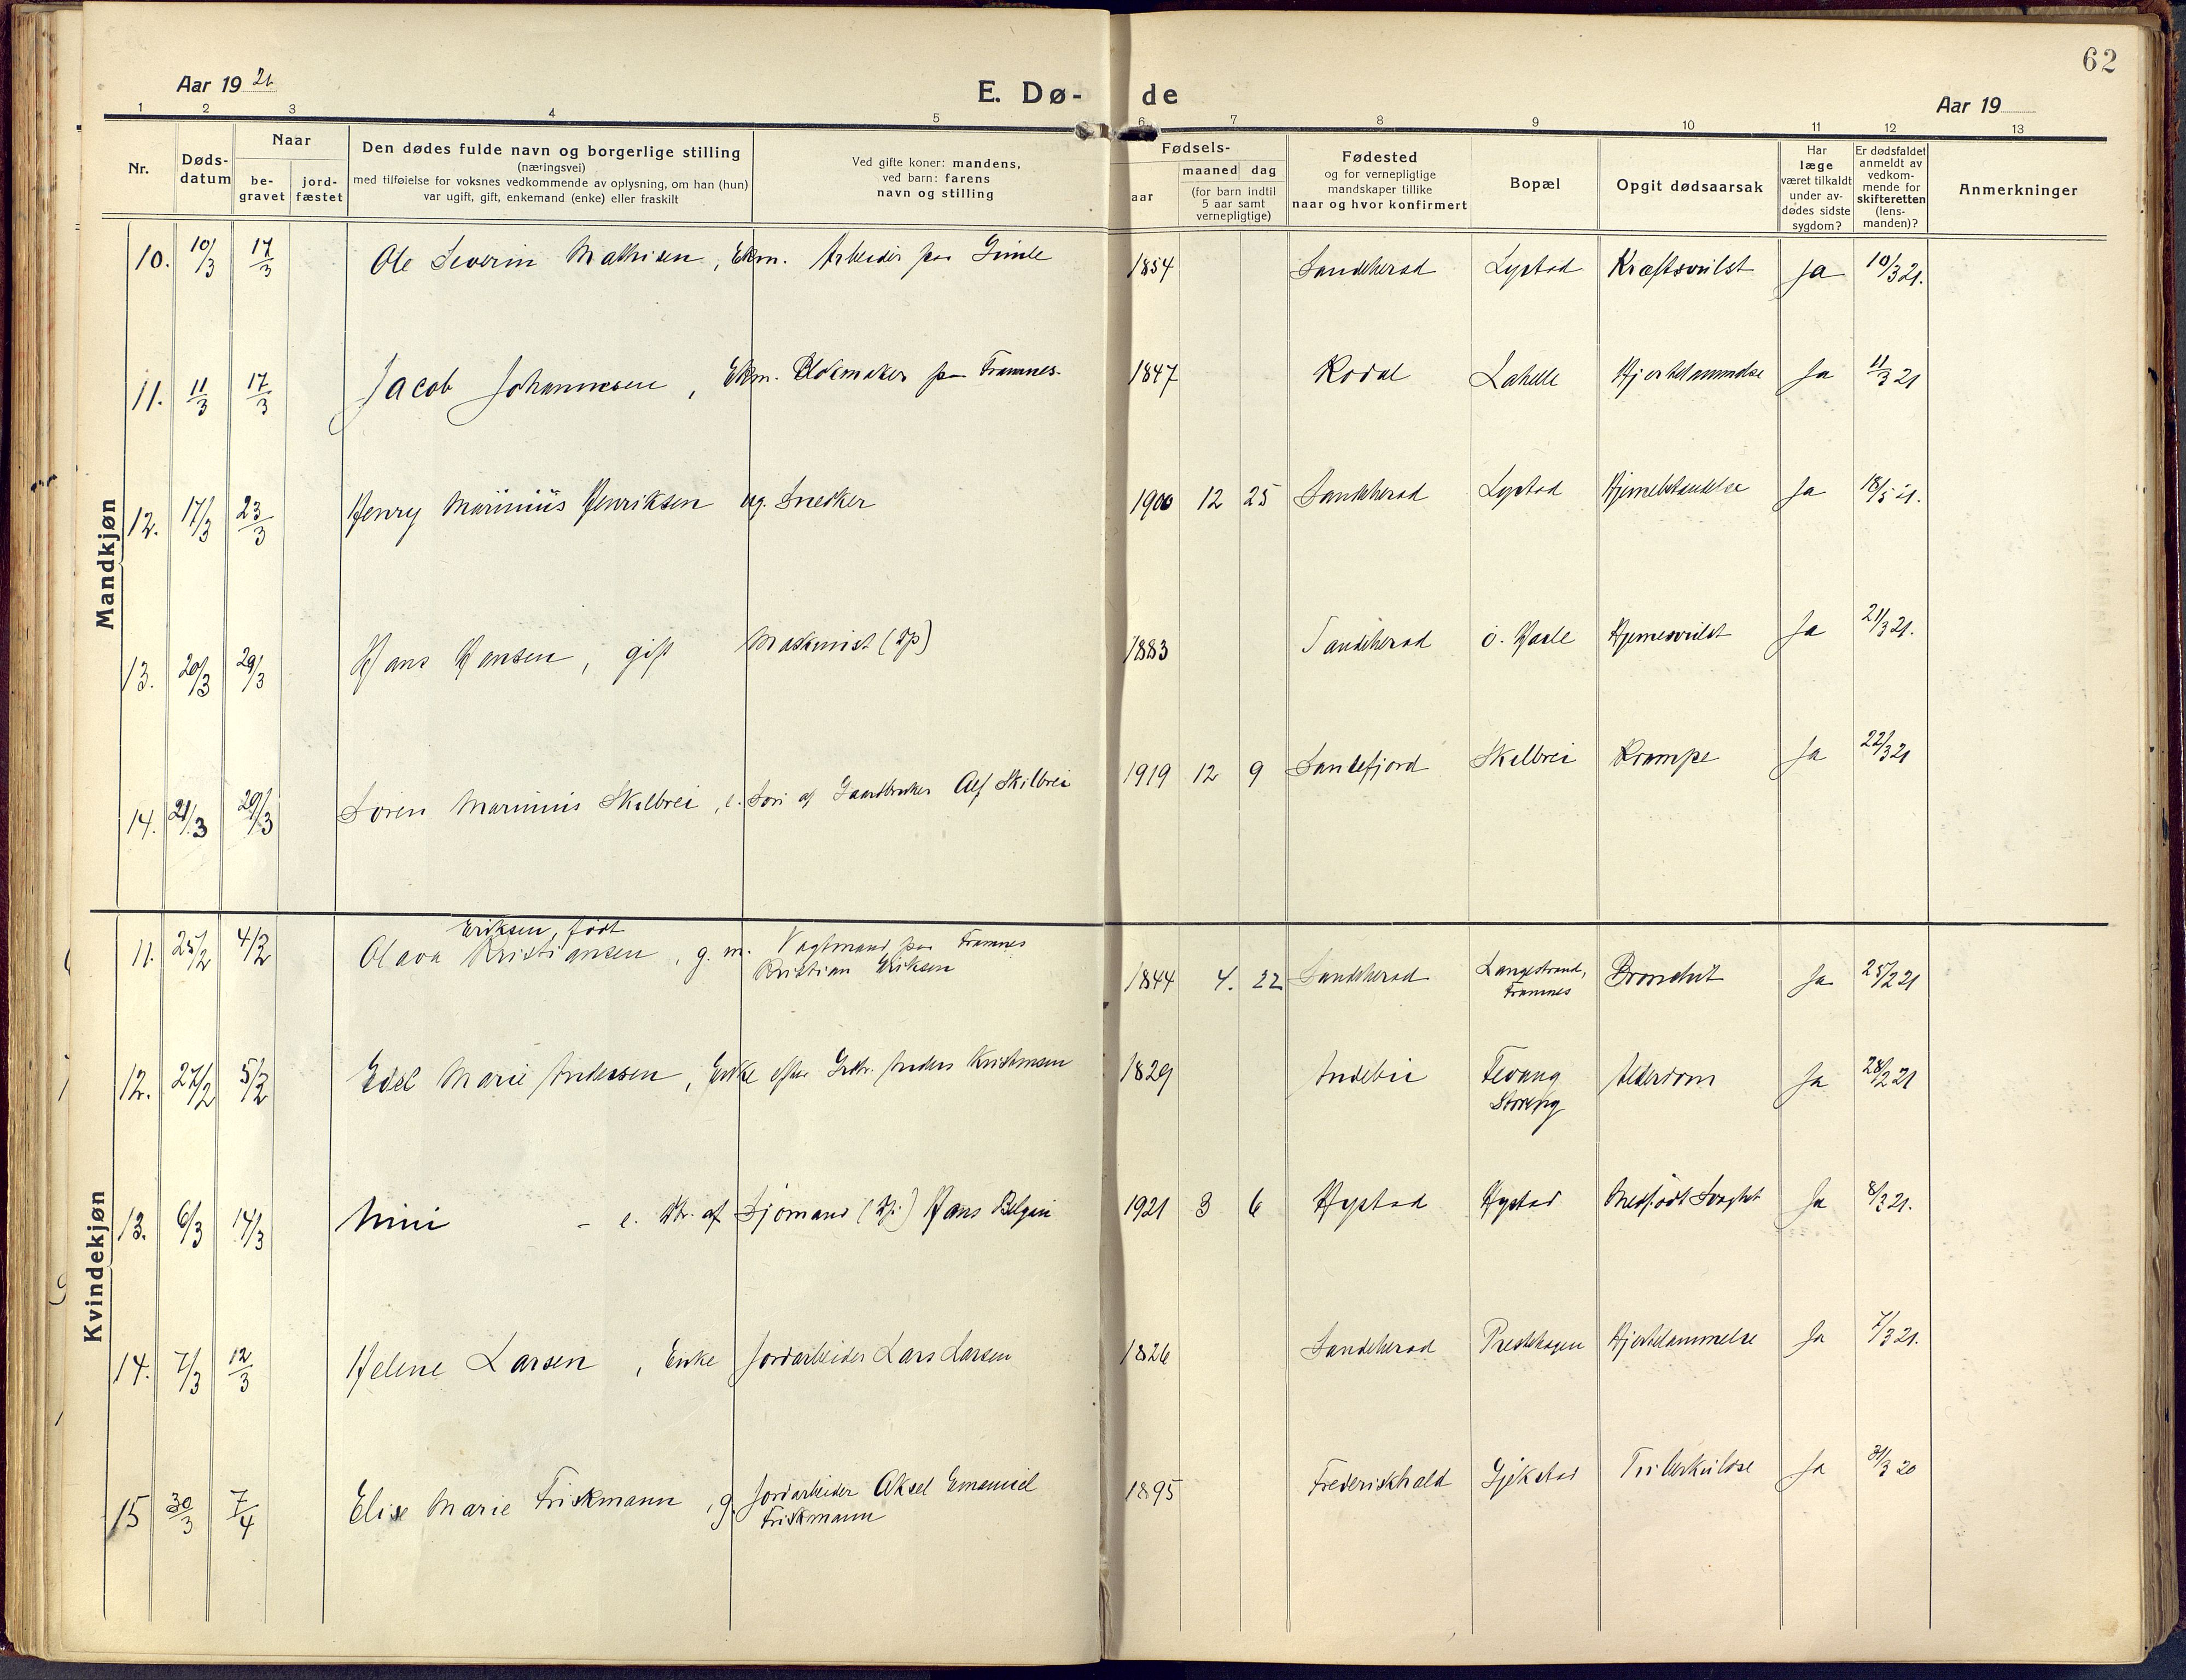 62
Aar 19 21
E. Dø- de
Aar 19
1 2 3 4 5 6 7 8 9 10 11 12 13
Nr.
Døds-
datum
Naar
be-
gravet
jord-
fæstet
Den dødes fulde navn og borgerlige stilling
(næringsvei)
med tilføielse for voksnes vedkommende av oplysning, om han (hun)
var ugift, gift, enkemand (enke) eller fraskilt
Ved gifte koner: mandens,
ved barn: farens
navn og stilling
Fødsels-
aar
maaned dag
(for barn indtil
5 aar samt
vernepligtige)
Fødested
og for vernepligtige
mandskaper tillike
naar og hvor konfirmert
Bopæl
Opgit dødsaarsak
Har
læge
været tilkaldt
under av-
dødes sidste
sygdom?
Er dødsfaldet
anmeldt av
vedkom-
mende for
skifteretten
(lens-
manden)?
Anmerkninger
Mandkjøn
10. 10/3 17/3 Ole Severin Mathisen, Ekm. Arbeider paa Gimle 1854 Sandeherad Lystad Kræftsvulst Ja 10/3 21.
11. 11/3 17/3 Jacob Johannesen, Ekm. Blokmaker paa Framnes. 1847 Kodal Lahelle Hjertelammelse Ja 11/3 21
12. 17/3 23/3 Henry Marinius Henriksen ug. Snedker 1900 12 25 Sandeherad Lystad Ja
13. 20/3 29/3 Hans Hansen, gift Maskinist 1883 Sandeherad ö. Hasle Hjernesvulst Ja 21/3 21.
14. 21/3 29/3 Søren Marinius Skilbrei, e. Søn af Gaardbruker Alf Skilbrei 1919 12 9 Sandefjord Skilbrei Krampe Ja 22/3 21
Kvindekjøn
Eriksen, født
11. 25/2 Olava Kristiansen, g. m. Vagtmand paa Framnes 1844 4. 22 Sandeherad Langestrand, Ja 25/2 21
Kristian Eriksen Framnes
12. 27/2 Marie Andersen, Enke efter Gdbr. Anders Kristensen 1829 Andebu Fevang Alderdom Ja 28/2 21
Storeng
13. 6/3 14/3 - e. Dtr. af Sjömand Hans 1921 3 6 Hystad Hystad Medfødt Svaghet Ja 8/3 21.
14. 7/3 12/3 Helene Larsen, Enke Jordarbeider Lars Larsen 1826 Sandeherad Presthagen Hjertelammelse Ja 7/3 21.
15 30/3 7/4 Elise Marie Friskmann, g. Jordarbeider Aksel Emanuel 1895 Frederikhald Gjekstad Tuberkulose Ja 31/3 20
Friskmann